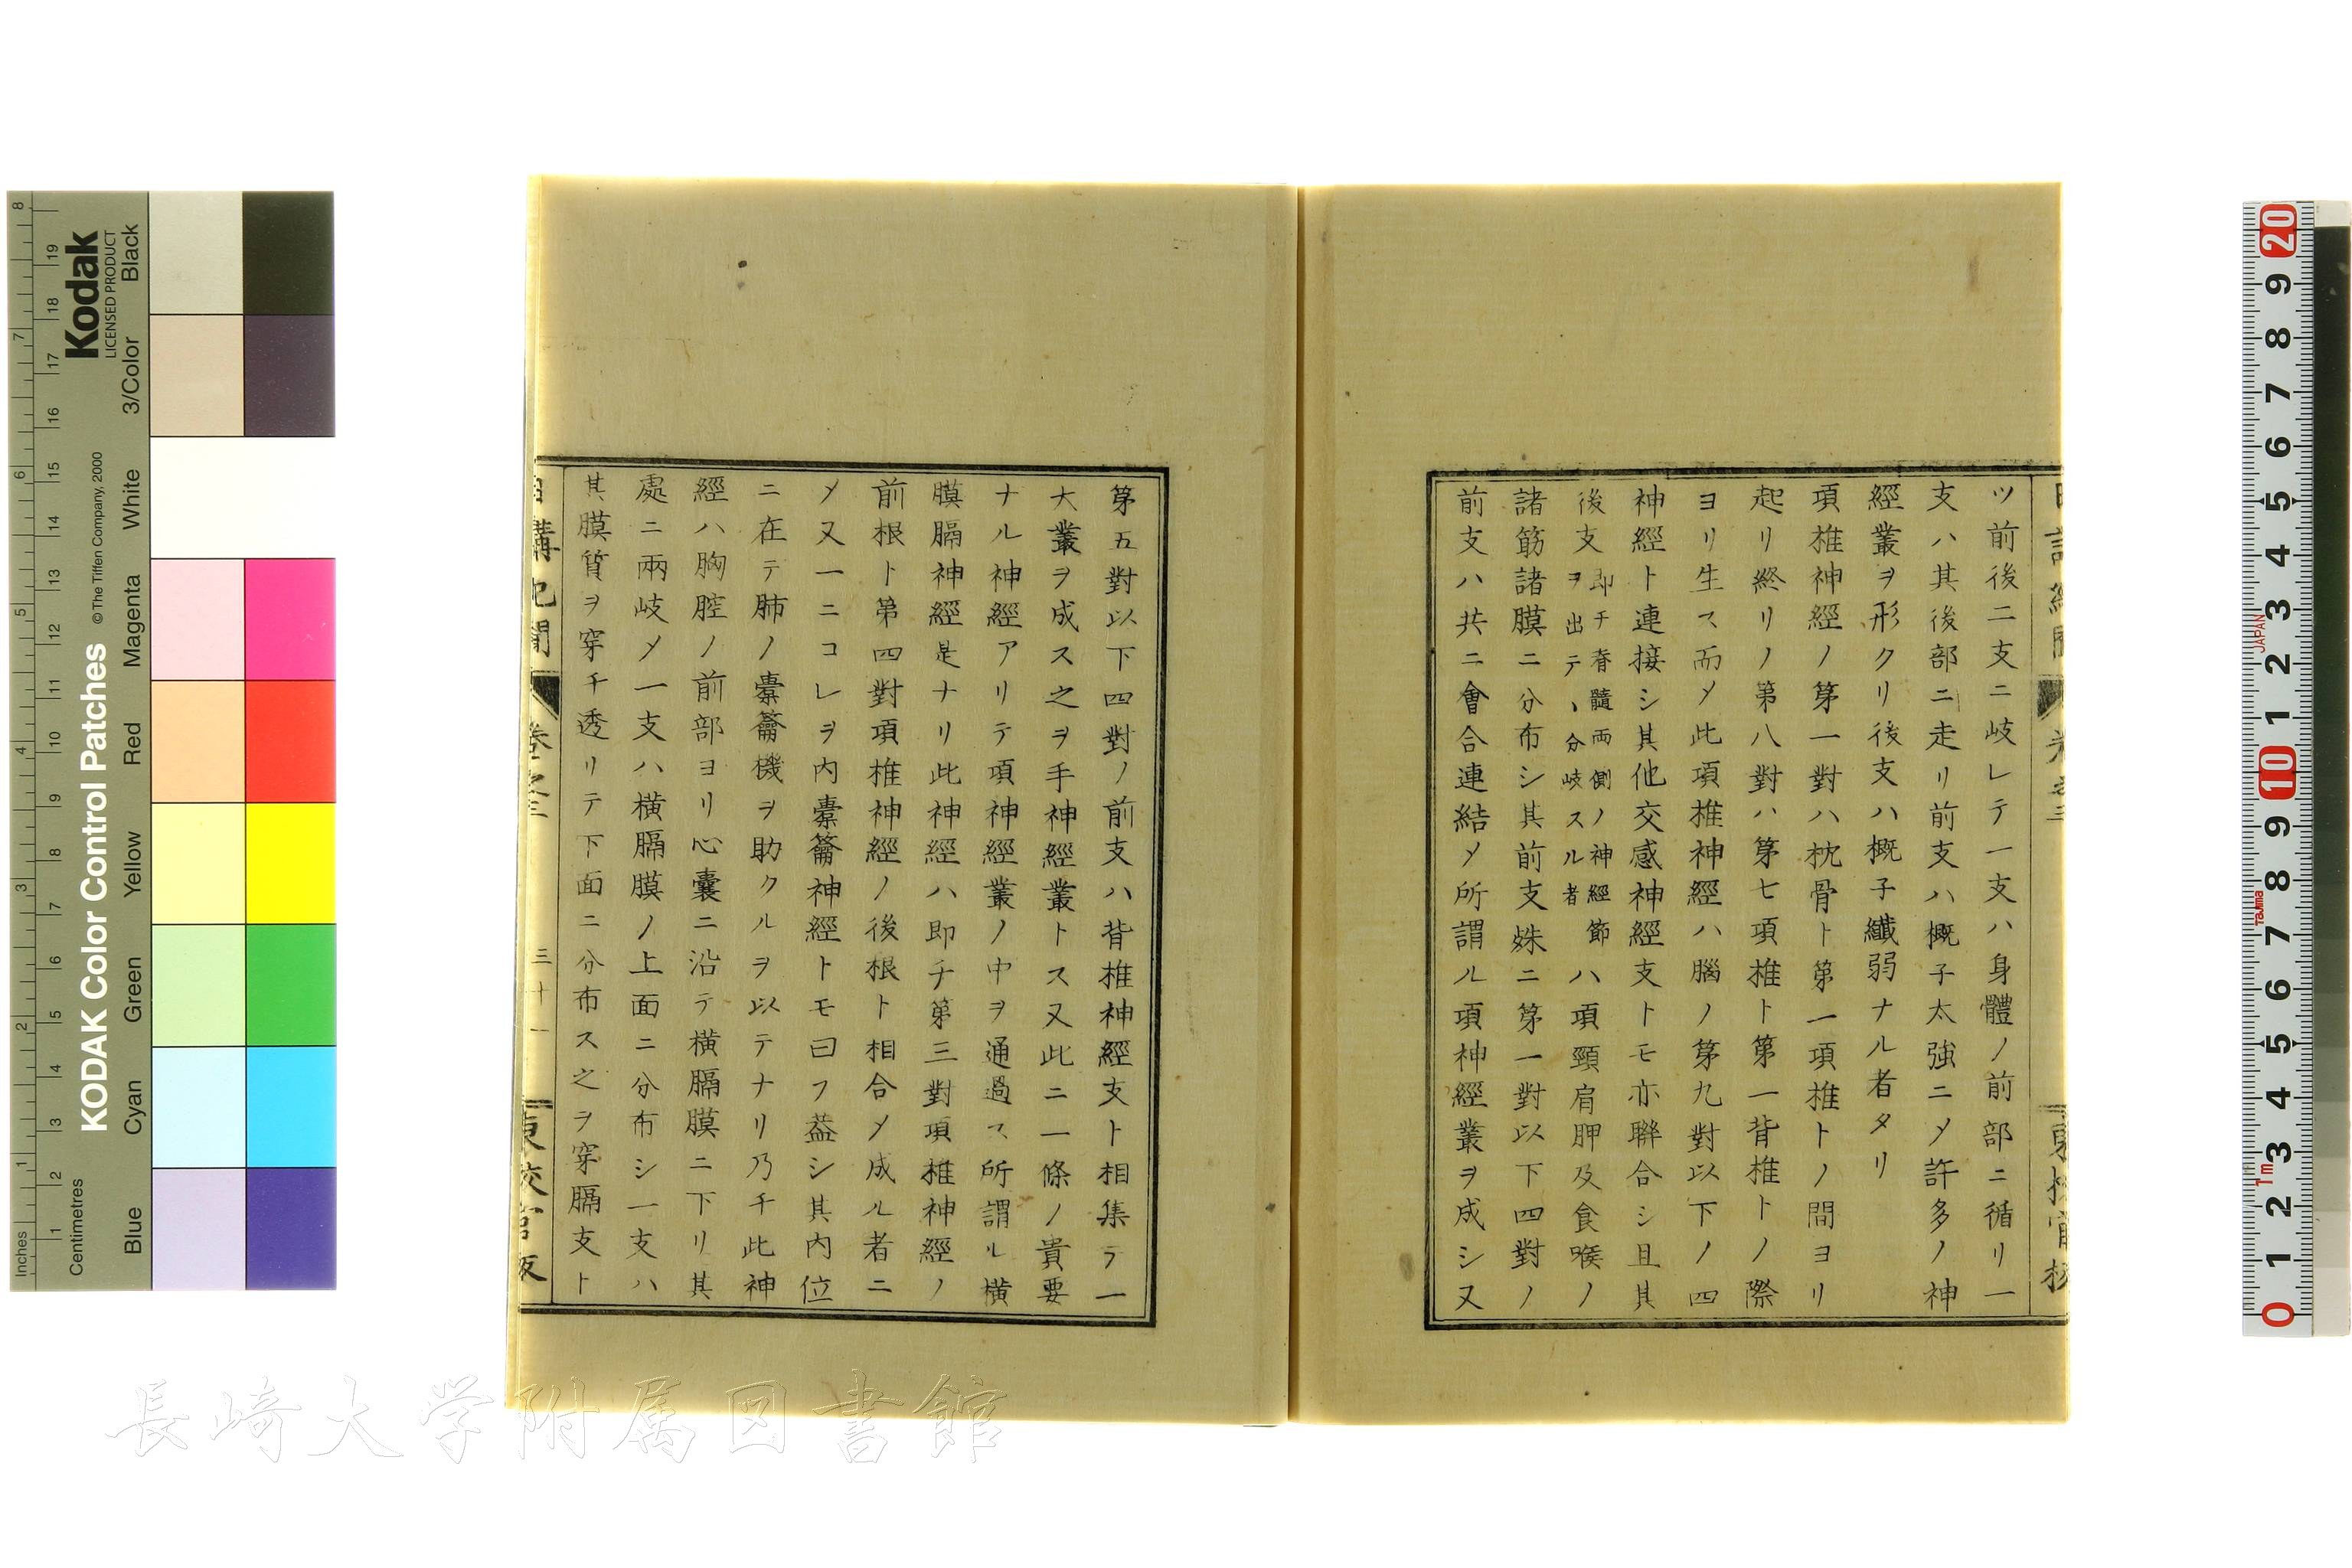 ツ前後二支ニ岐レテ一支ハ身體ノ前部ニ循リ一
支ハ其後部ニ走リ前支ハ概子太強ニメ許多ノ神
經叢ヲ形クリ後支ハ概子纎弱ナル者タリ
項椎神經ノ第一對ハ枕骨ト第一項椎トノ間ヨリ
起リ終リノ第八對ハ第七項椎ト第一背椎トノ際
ヨリ生ス而メ此項椎神經ハ腦ノ第九對以下ノ四
神經ト連接シ其他交感神經支トモ亦聯合シ且其
後支即チ脊髓両側ノ神經節ヲ出テヽ分岐スル者ハ項頸肩胛及食喉ノ
諸筋諸膜ニ分布シ其前支殊ニ第一對以下四對ノ
前支ハ共ニ會合連結メ所謂ル項神經叢ヲ成シ又
第五對以下四對ノ前支ハ背椎神經支ト相集テ一
大叢ヲ成ス之ヲ手神經叢トス又此ニ一條ノ貴要
ナル神經アリテ項神經叢ノ中ヲ通過ス所謂ル横
膜膈神經是ナリ此神經ハ即チ第三對項椎神經ノ
前根ト第四對項椎神經ノ後根ト相合メ成ル者ニ
メ又一ニコレヲ内橐籥神經トモ曰フ葢シ其内位
ニ在テ肺ノ橐籥機ヲ助クルヲ以テナリ乃チ此神
經ハ胸腔ノ前部ヨリ心囊ニ沿テ横膈膜ニ下リ其
處ニ兩岐メ一支ハ横膈膜ノ上面ニ分布シ一支ハ
其膜質ヲ穿チ透リテ下面ニ分布ス之ヲ穿膈支ト
日講記聞 卷之三 三十一 東校官版
長崎大学附属図書館
Kodak
LICENSED PRODUCT
KODAK Color Control Patches
© The Tiffen Company, 2000
Blue Cyan Green Yellow Red Magenta White 3/Color Black
Inches 1 2 3 4 5 6 7 8
Centimetres 1 2 3 4 5 6 7 8 9 10 11 12 13 14 15 16 17 18 19
20 9 8 7 6 5 4 3 2 1 10 9 8 7 6 5 4 3 2 1 0
JAPAN
Tajima
1m